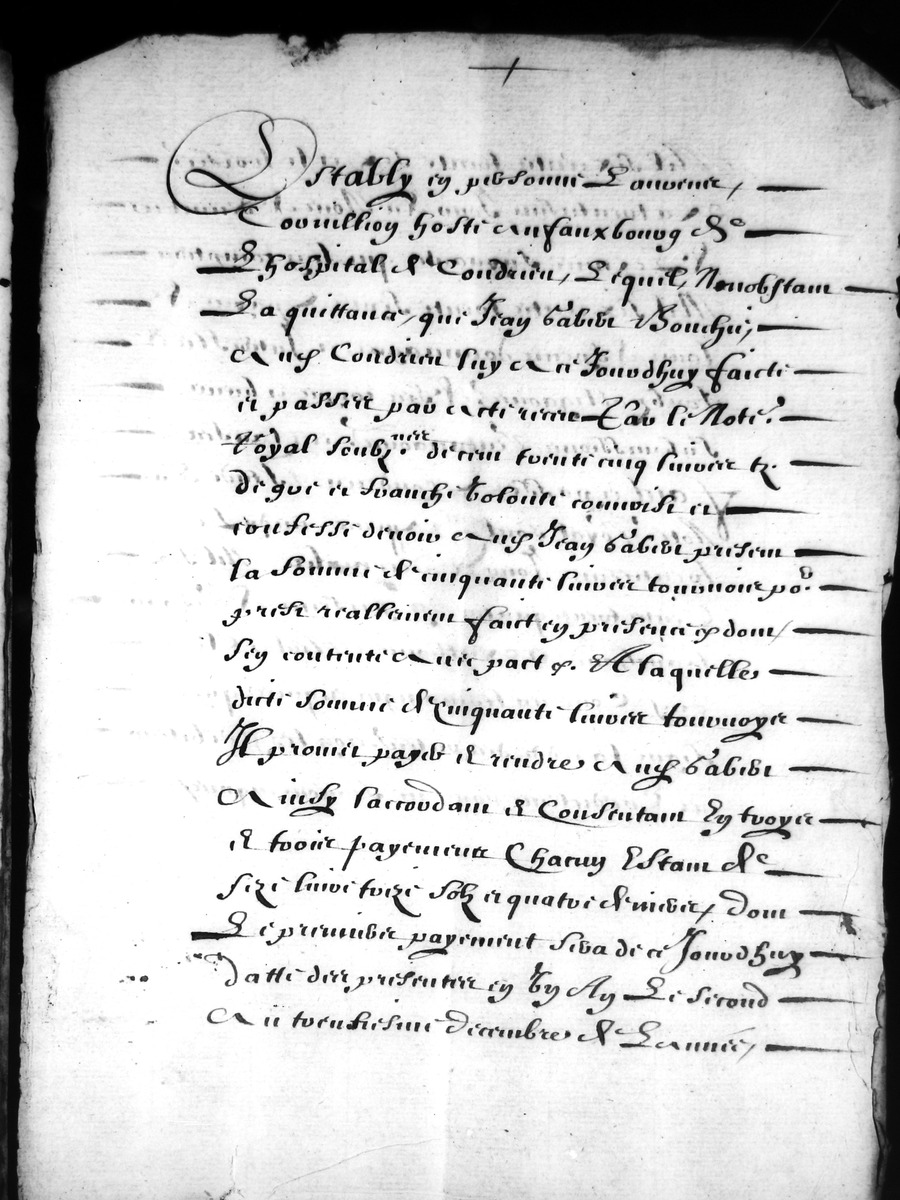 Estably en personne Laurens,
Tourillion hoste au faux bourg de
Lhospital de Condrieu, Lequel, Nonobstant
La quittance, que Jean Gabert Bouchie,
Aud Condrieu luy a ce Jourdhuy faicte
et passee par acte receu Par le Note.
Royal soubz.né de cent trente cinq livres tz.
de gre et franche volonte couvrise et
confesse devoir aud Jean Gabert present
la somme de cinquante livres tournois por.
prest reallement faict en presence & dont,
sen contente avec pact &. A laquelle
dicte somme de cinquante livres tournoyes
Il promet payer et rendre aud Gabert
Ainsy laccordant et Consentant En troyes
et trois payements Chacun Estant de
seze livre treze solz et quatre deniers, dont
Le premier payement sera de ce Jourdhuy
datte des presentes en un An Le second
Au trentiesme decembre de Lannee,